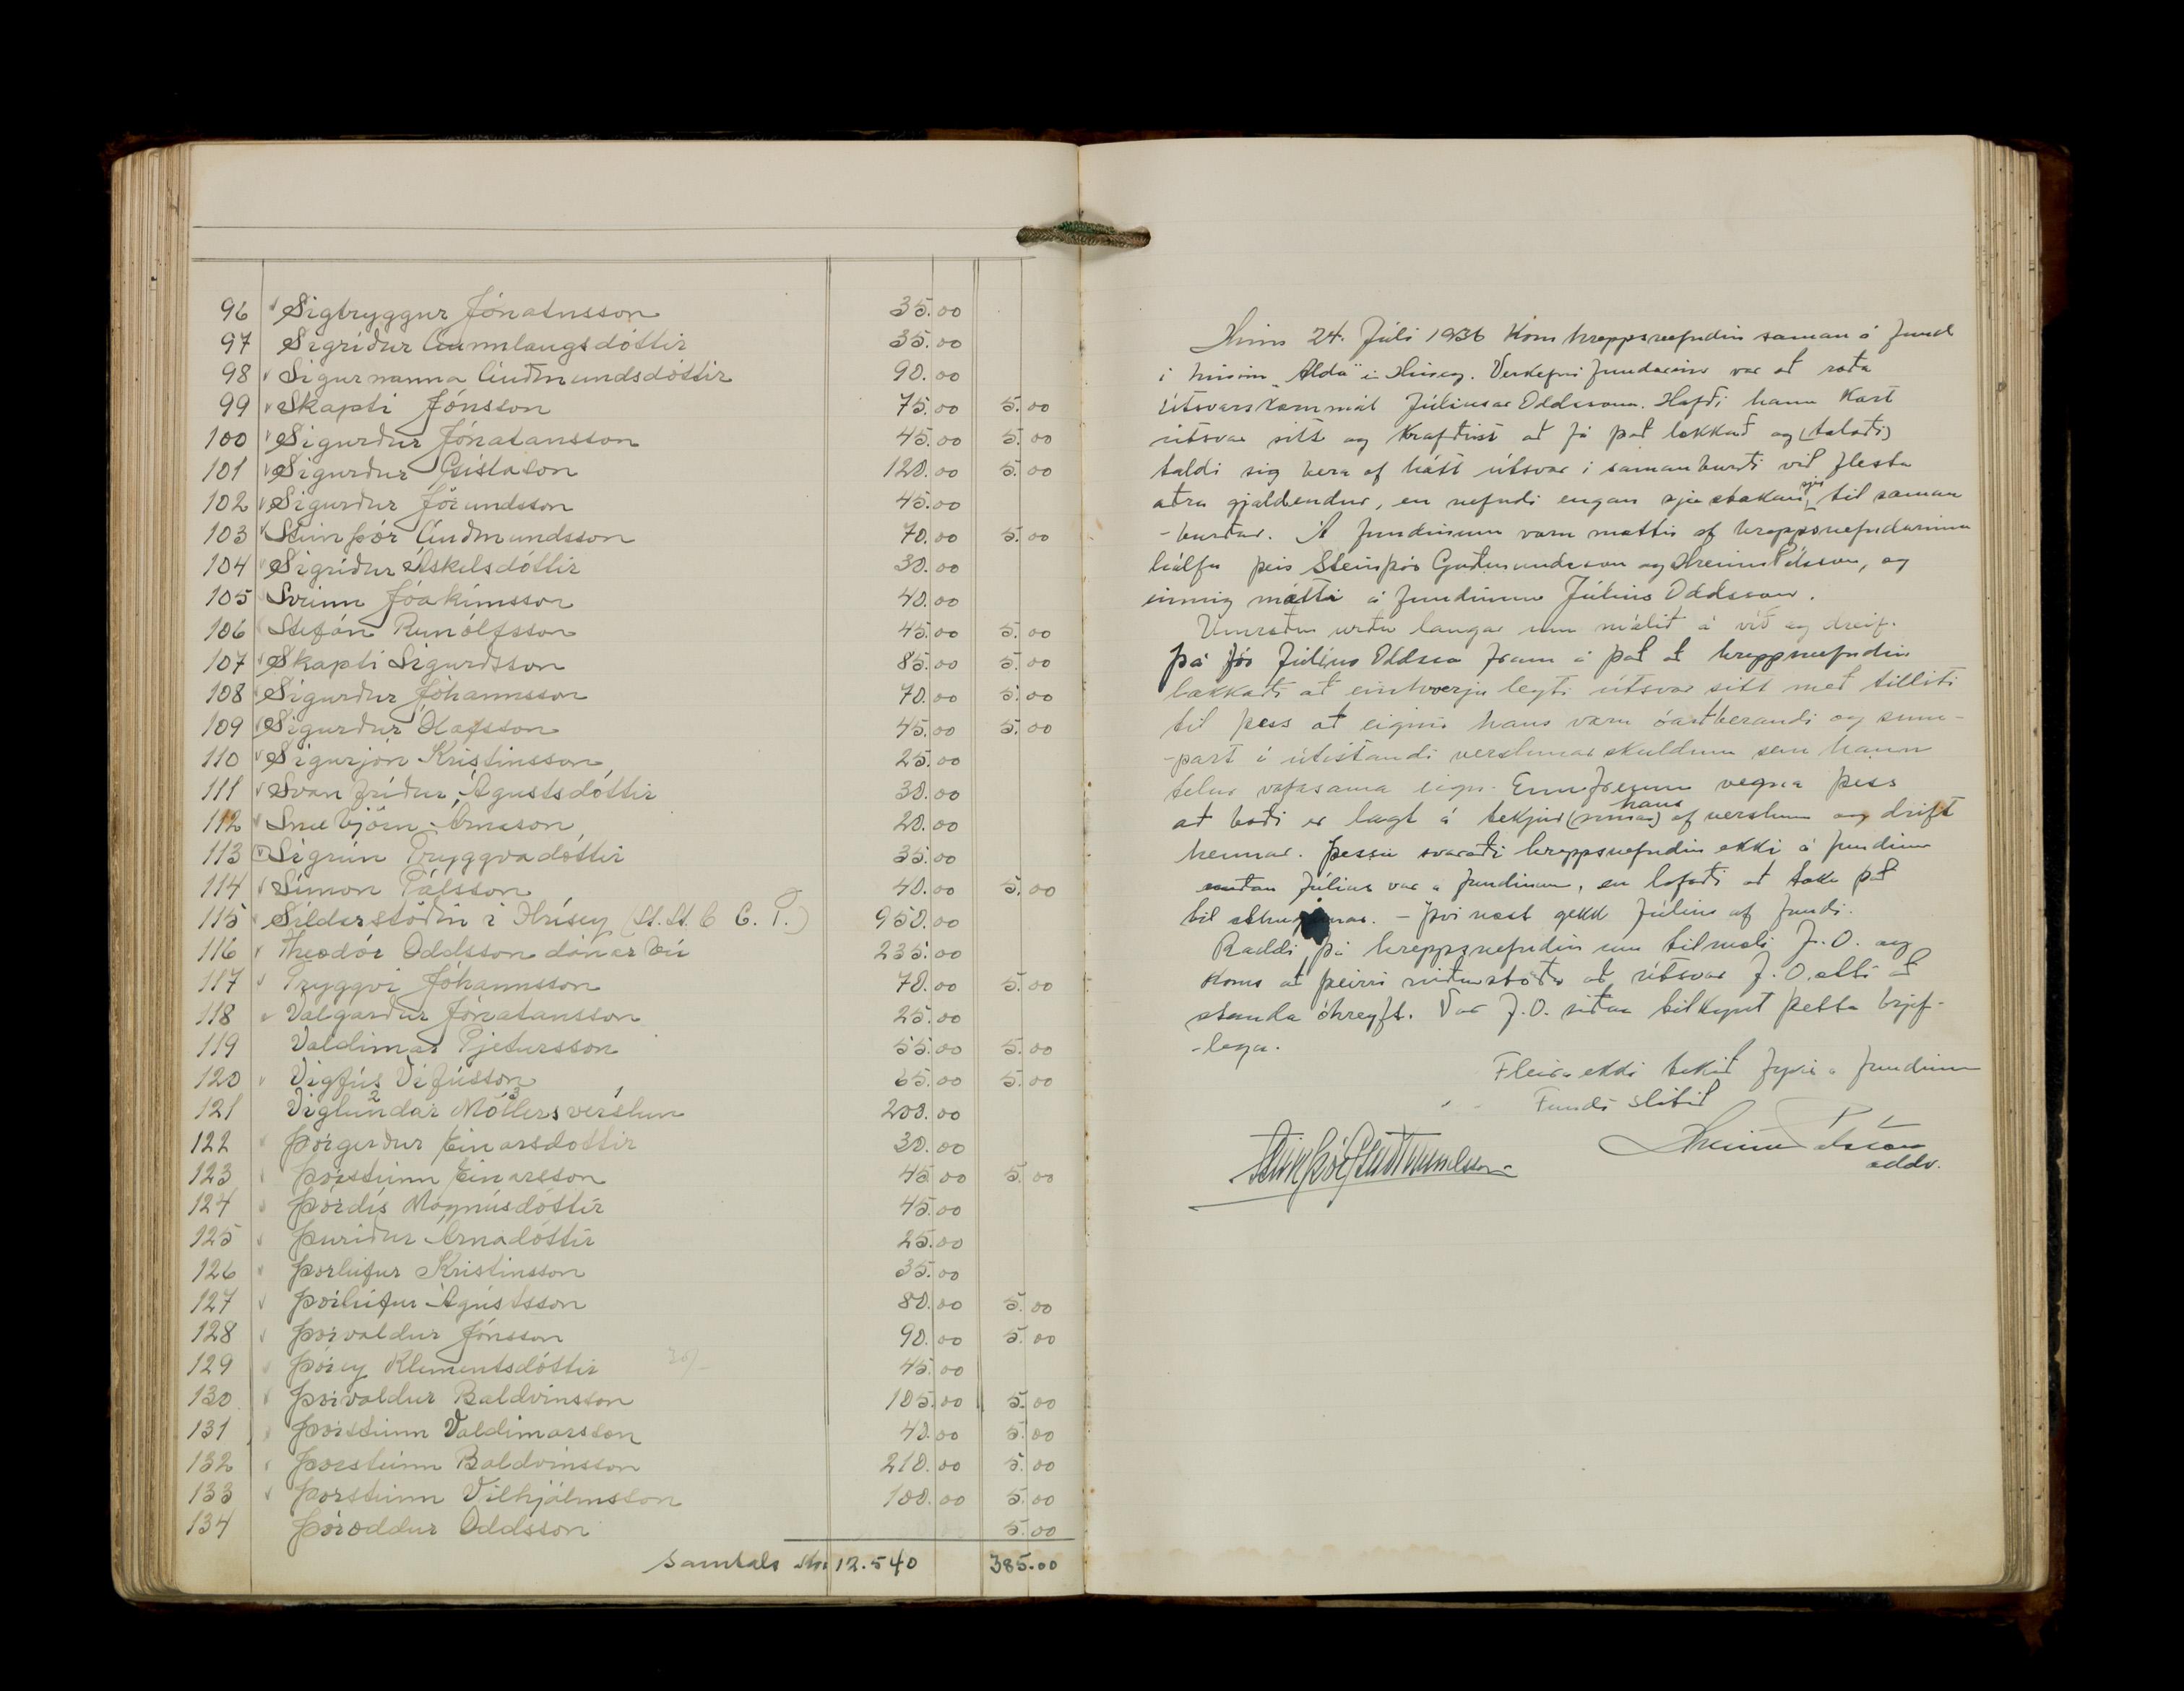 96 Sigtryggur Jónatnsson 35.00
97 Sigríður Gunnlaugsdóttir 35.00
98 Sigurnanna Guðmundsdóttir 90.00
99 Skapti Jónsson 75.00 5.00
100 Sigurður Jónatansson 45.00 5.00
101 Sigurður Gíslason 120.00 5.00
102 Sigurður Jörundsson 45.00
103 Steinþór Guðmundsson 70.00 5.00
104 Sigríður Áskelsdóttir 30.00
105 Sveinn Jóakimsson 40.00
106 Stefán Runólfsson 45.00 5.00
107 Skapti Sigurðsson 85.00 5.00
108 Sigurður Jóhannsson 70.00 5.00
109 Sigurður Ólafsson 45.00 5.00
110 Sigurjón Kristinsson 25.00
111 Svanfríður Águstsdóttir 30.00
112 Snæbjörn Árnason 20.00
113 Sigrún Tryggvadóttir 35.00
114 Símon Pálsson 40.00 5.00
115 Síldarstöðin í Hrísey (St. St. C. C. T.) 950.00
116 Theodór Oddsson dánarbú 235.00
117 Tryggvi Jóhannsson 70.00 5.00
118 Valgarður Jónatansson 25.00
119 Valdimar Pjetursson 55.00 5.00
120 Vigfús Vifússon 65.00 5.00
121 Viglundar Möllers verslun 200.00
122 Þorgerður Einarsdottir 30.00
123 Þorsteinn Einarsson 45.00 5.00
124 Þórdís Magnúsdóttir 45.00
125 Þuriður Árnadóttir 25.00
126 Þorleifur Kristinsson 35.00
127 Þorleifur Ágústsson 80.00 5.00
128 Þorvaldur Jónsson 90.00 5.00
129 Þórey Klementsdóttir 45.00
130 Þorvaldur Baldvinsson 105.00 5.00
131 Þorsteinn Valdimarsson 40.00 5.00
132 Þorsteinn Baldvinsson 210.00 5.00
133 Þorsteinn Vilhjálmsson 100.00 5.00
134 Þóroddur Oddsson 5.00
Samtals kr. 12.540 385.00
Hinn 24. Júli 1936 kom hreppsnefndin saman á fund
i húsinu "Alda" i Hrisey. Verkefni fundarins var að ræða
útsvarskærumál Júliusar Oddssonar. Hafði hann kært
útsvar sitt og krafðist að fá það lækkað og (talaði)
taldi sig bera of hátt útsvar i samanburði við flesta
aðra gjaldendur, en nefndi engan sjerstakan til saman
-burðar. Á fundinum voru mættir af hreppsnefndarinnar
hálfu þeir Steinþór Guðmundsson og Hreinn Pálsson, og
einnig mætti á fundinum Júlíus Oddsson.
Umræður urðu langar um málið á við og dreif.
Þá fór Júlíus Oddsson fram á það að hreppsnefndin
lækkaði að einhverju leyti útsvar sitt með tilliti
til þess að eignir hans væru óarðberandi og sum-
-part í útistandi verslunarskuldum sem hann
telur vafasama eign. Ennfremur vegna þess
að bæði er lagt á tekjur (sinnar) hans af verslun og drift
hennar. Þessu svaraði hreppsnefndin ekki á fundinum
meðan Júlíus var á fundinum, en lofaði að taka það
til athugunar. - Því næst gekk Júlíus af fundi.
Ræddi þá hreppsnefndin um tilmæli J. O. og
koms að þeirri niðurstöðu að útsvar J. O. ætti að
standa óhreyft. Var J. O. síðan tilkynt þetta brjef-
-lega.
Fleira ekki tekið fyrir á fundinum
Fundi slitið
Steinþór Guðmundsson
Hreinn Pálsson
oddv.